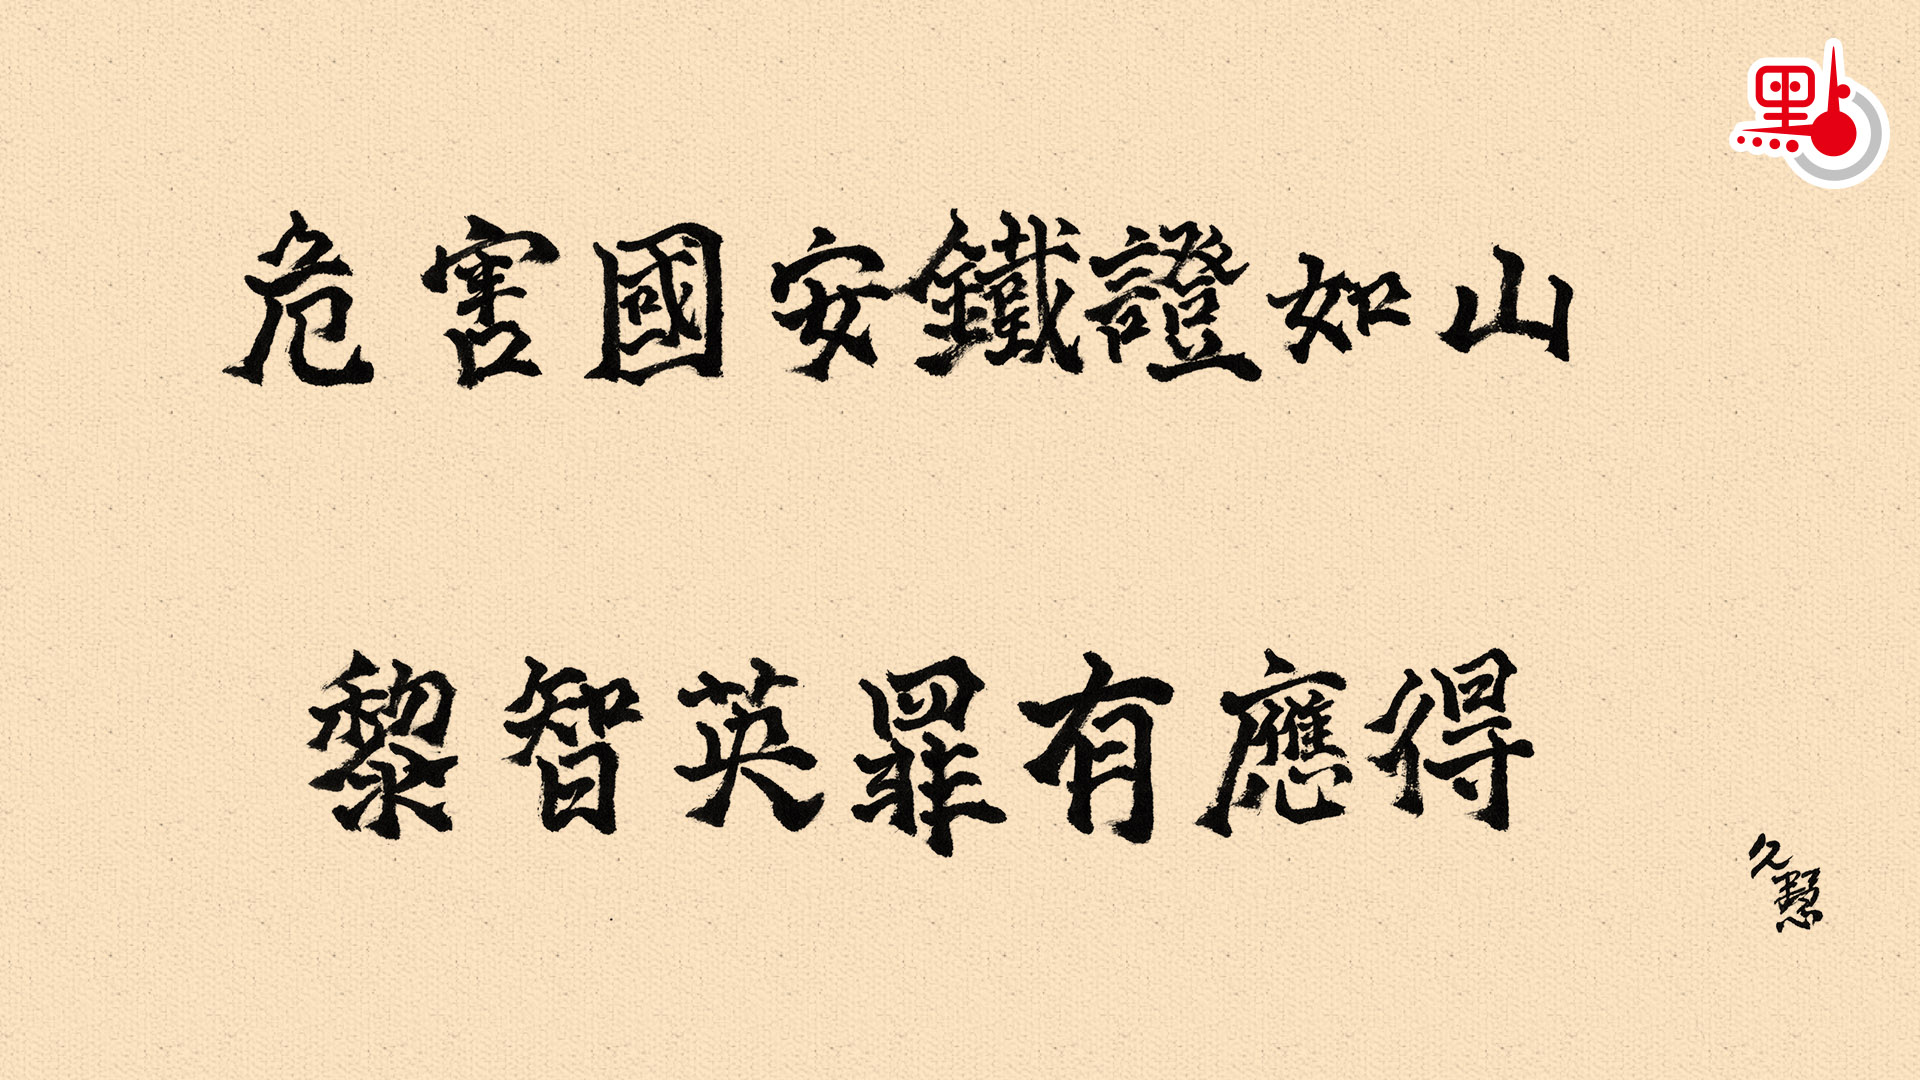 點
危害國安鐵證如山
黎智英罪有應得
久慧